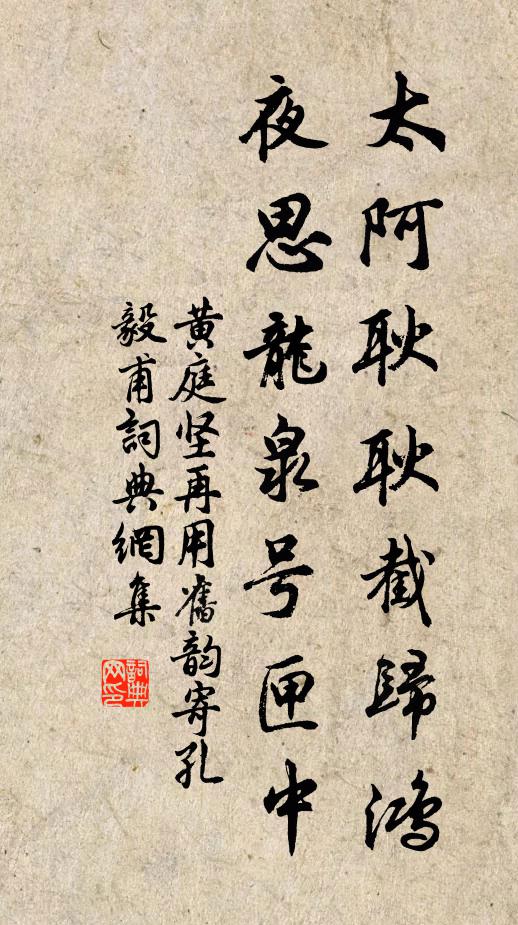 太阿耿耿截歸鴻
夜思龍泉号匣中
黄庭坚再用舊韵寄孔
毅甫詞典網集
詞典
网印